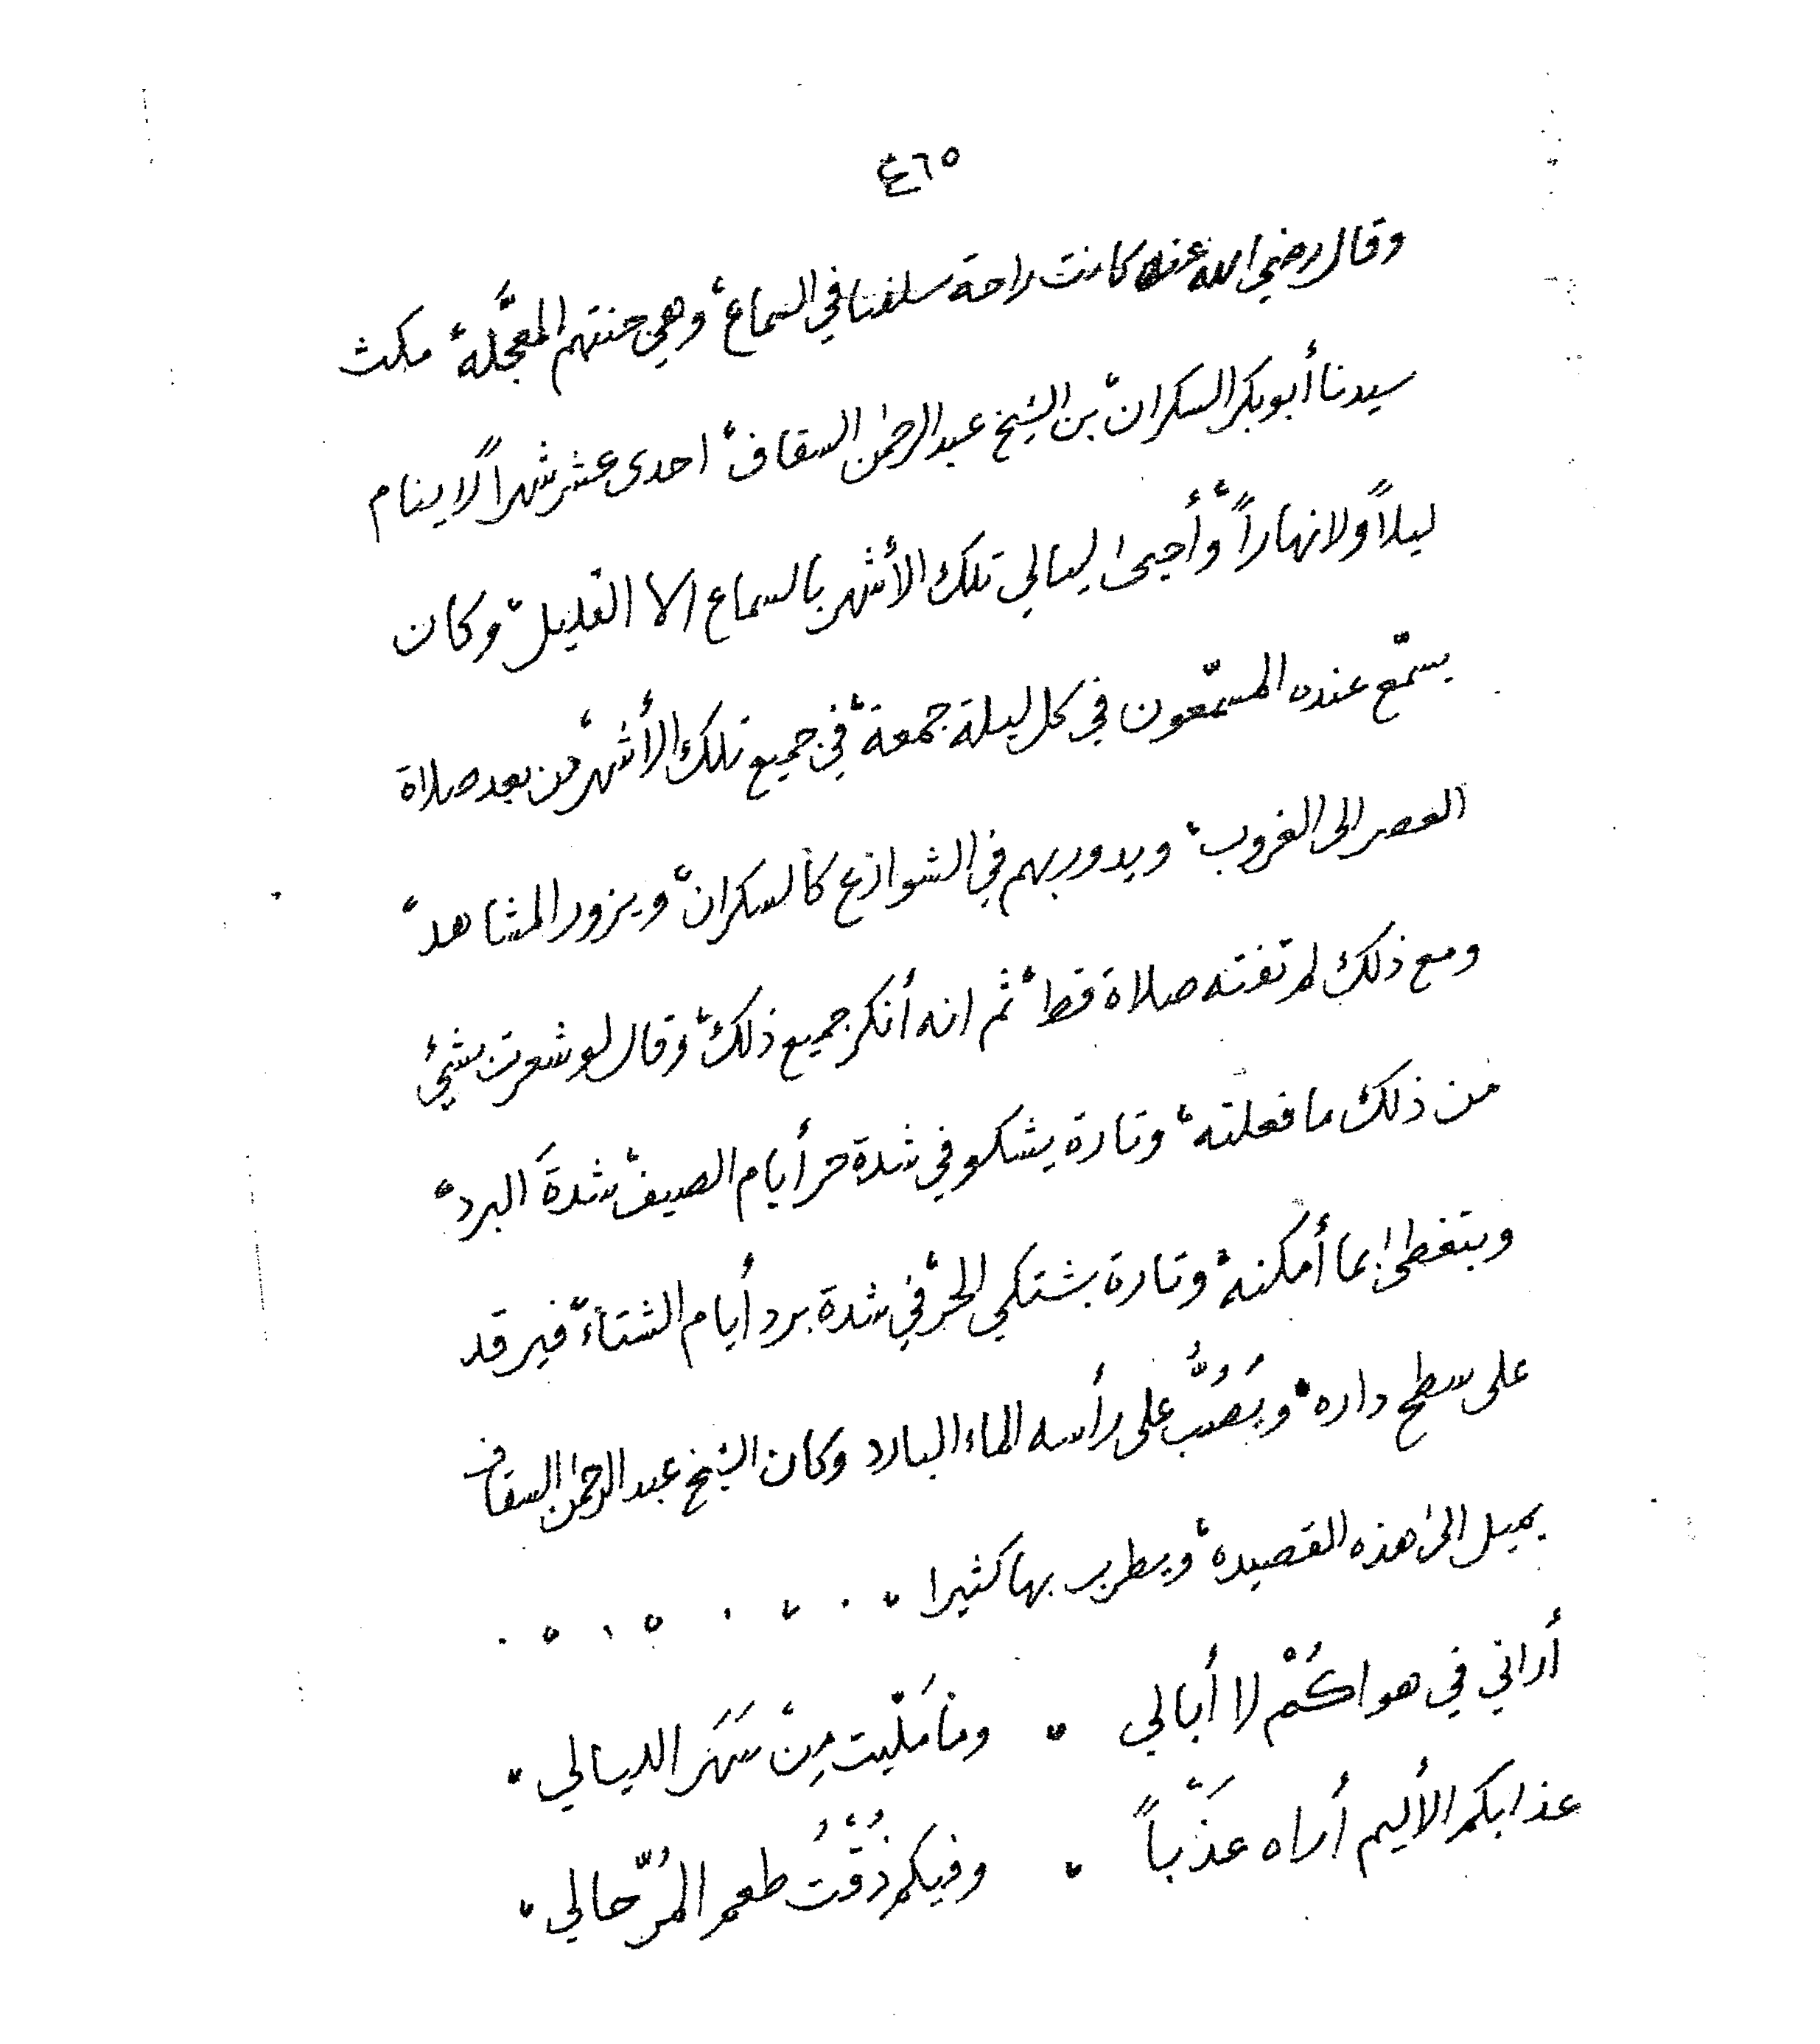 ٤٦٥
وقال رضي الله عنه كانت راحة سلفنا في السماع، وهي جنتهم المعجَّلة، مكث
سيدنا أبوبكر السكران، بن الشيخ عبدالرحمن السقاف، احدى عشر شهراً لا ينام
ليلاً ولا نهاراً، وأحيى ليالي تلك الأشهر بالسماع الا القليل، وكان
يسمّع عنده المسمّعون في كل ليلة جمعة، في جميع تلك الأشهر، من بعد صلاة
العصر الى الغروب، ويدور بهم في الشوارع كالسكران، ويزور المشاهد،
ومع ذلك لم تفته صلاة قط، ثم انه أنكر جميع ذلك، وقال لو شعرت بشئ
من ذلك ما فعلته، وتارة يشكو في شدة حر أيام الصيف، شدةَ البرد،
ويتغطى بما أمكنه، وتارة يشتكي الحرّ في شدة برد أيام الشتاء، فيرقد
على سطح داره، ويَصُبُّ على رأسه الماء البارد وكان الشيخ عبدالرحمن السقاف
يميل الى هذه القصيده، ويطرب بها كثيرا
أراني في هواكُمْ لا أبالي ، وما مَلّيت مِنْ سَهَر الليالي ،
عذابكم الأليم أراه عَذْباً ، وفيكم ذُقْتُ طعم المُرّ حالي ،